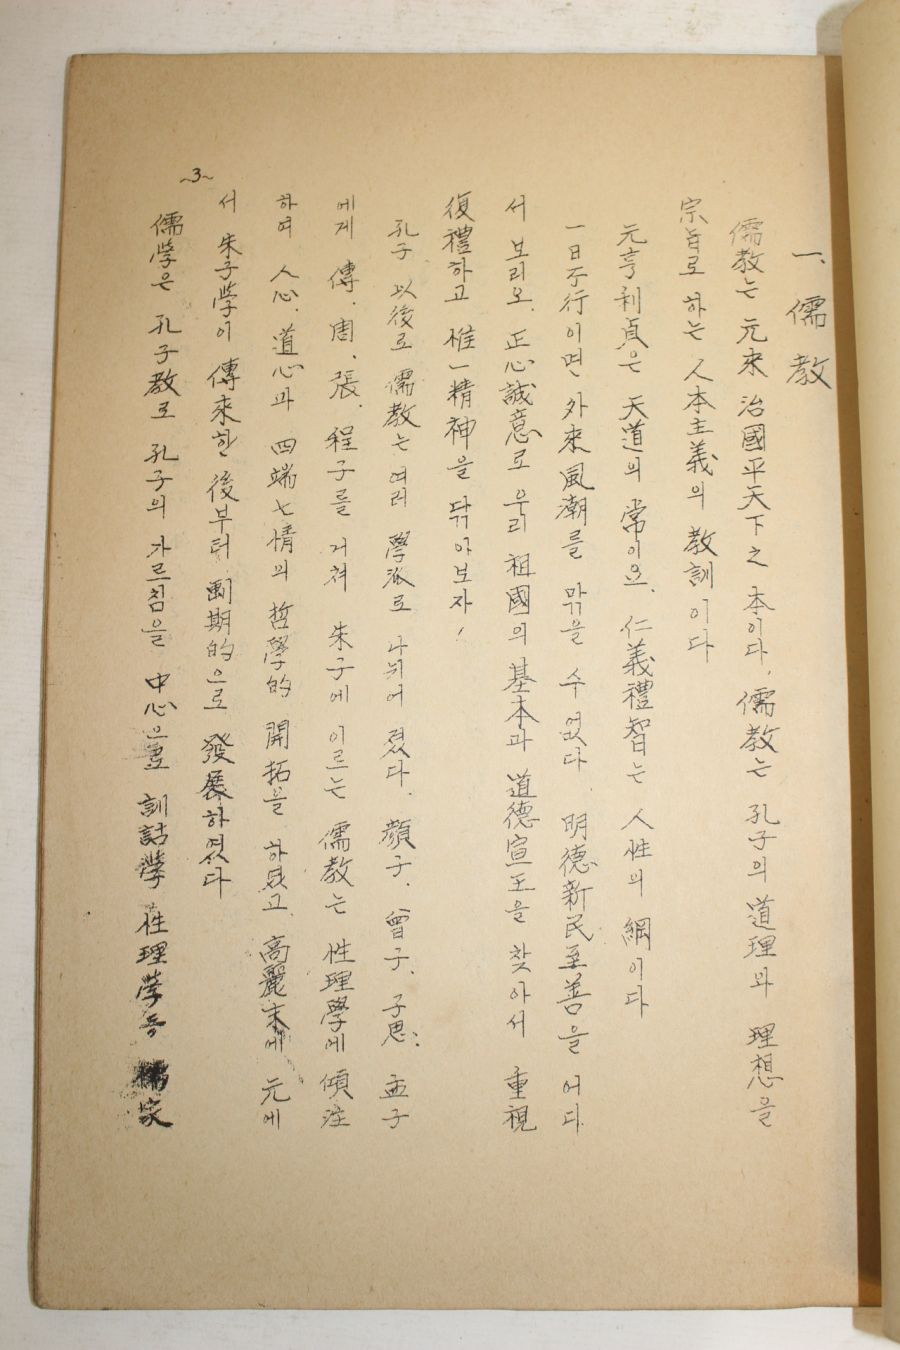 一. 儒教
儒教는 元來 治國平天下之 本이다. 儒教는 孔子의 道理와 理想을
宗旨로 하는 人本主義의 教訓이다
元亨利貞은 天道의 常이요. 仁義禮智는 人性의 綱이다
一日不行이면 外來風潮를 막을 수 없다. 明德新民至善을 어디
서 보리오. 正心誠意로 우리 祖國의 基本과 道德宣正을 찾아서 重視
復禮하고 惟一精神을 닦아보자!
孔子 以後로 儒教는 여러 學派로 나뉘어 졌다. 顔子. 曾子. 子思. 孟子
에게 傳. 周. 張. 程子를 거쳐 朱子에 이르는 儒教는 性理學에 傾注
하여 人心. 道心과 四端七情의 哲學的 開拓을 하였고. 高麗末에 元에
서 朱子學이 傳來한 後부터 劃期的으로 發展하였다
儒學은 孔子教로 孔子의 가르침을 中心으로 訓詁學 性理學等 儒家
~3~